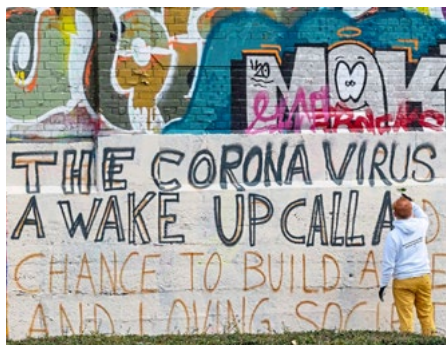 MOK
THE CORONA VIRUS
A WAKE UP CALL
CHANCE TO BUILD A
AND LOVING